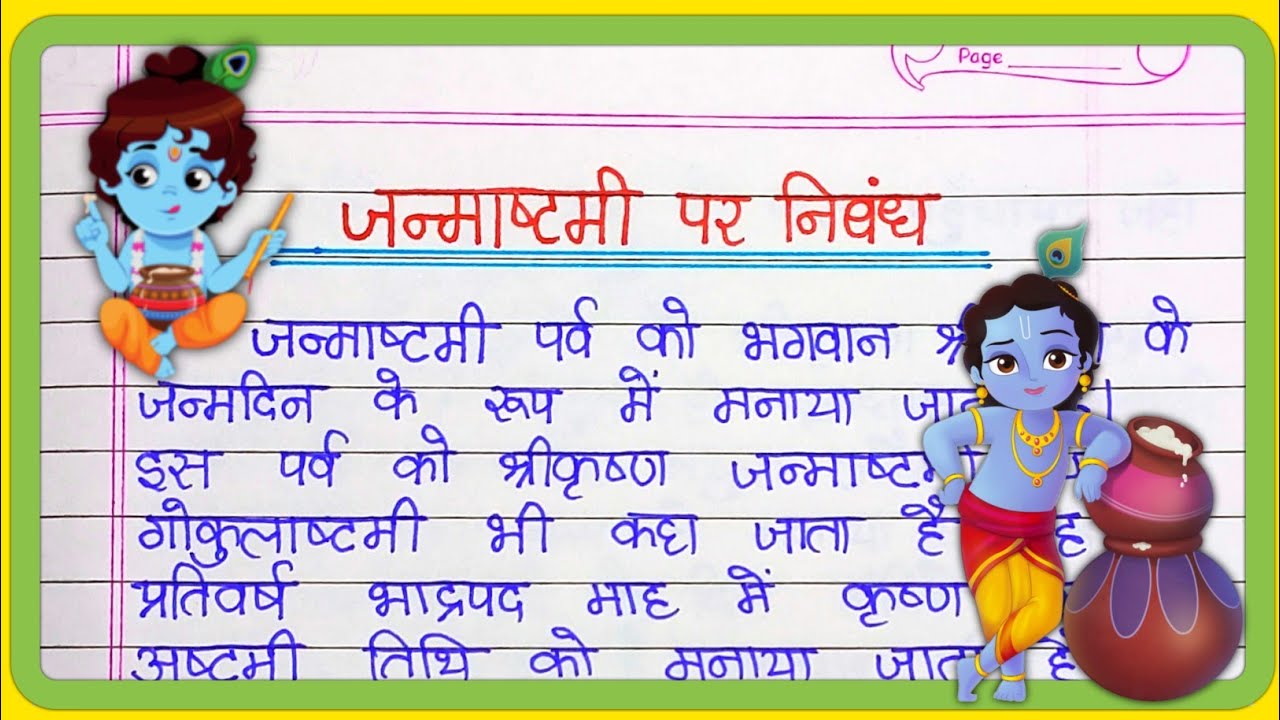 Page
जन्माष्टमी पर निबंध
जन्माष्टमी पर्व को भगवान के
जन्मदिन के रूप में मनाया
इस पर्व को श्रीकृष्ण
गोकुलाष्टमी भी कहा जाता है
प्रतिवर्ष भाद्रपद माह में कृष्ण
अष्टमी तिथि को मनाया